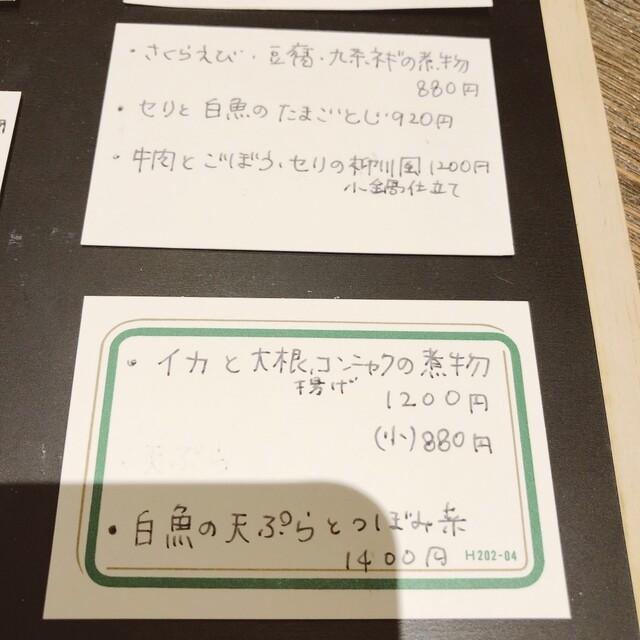 ・さくらえび・豆腐・九条ネギの煮物
880円
・セリと白魚のたまごとじ 920円
・牛肉とごぼう、セリの柳川風 1200円
小鍋仕立て
・イカと大根、コンニャクの煮物
揚げ
1200円
(小) 880円
・白魚の天ぷらとつぼみ菜
1400円
H202-04